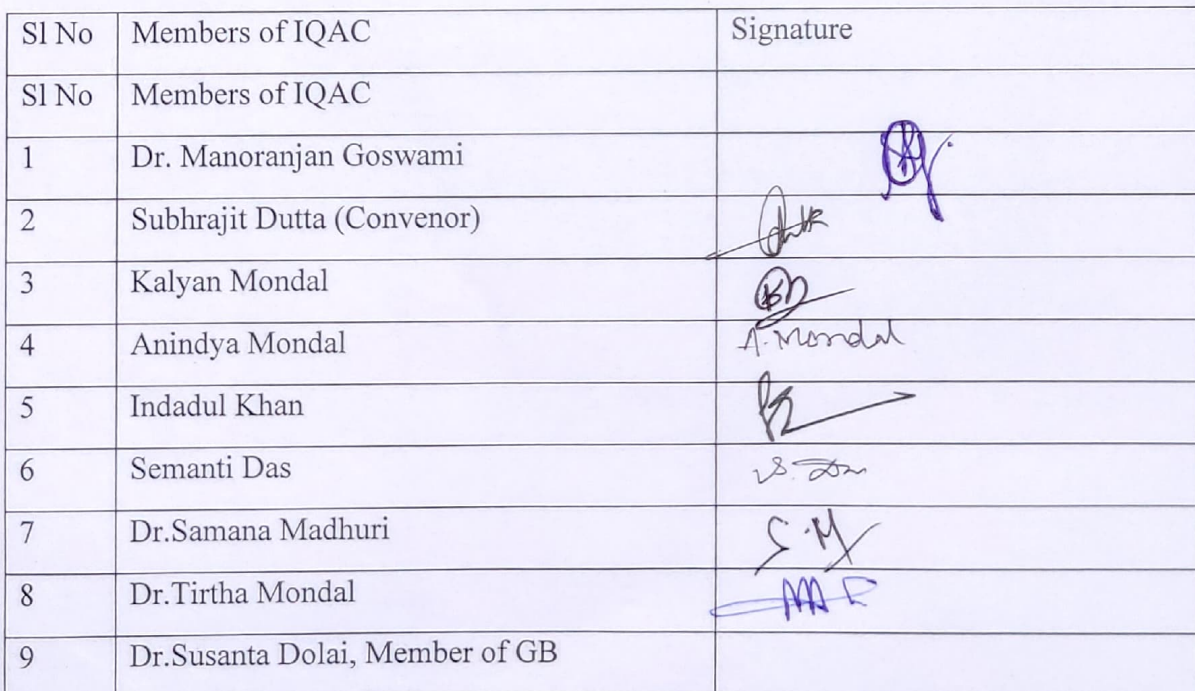 Sl No Members of IQAC Signature
Sl No Members of IQAC
1 Dr. Manoranjan Goswami
2 Subhrajit Dutta (Convenor)
3 Kalyan Mondal
4 Anindya Mondal A. Mondal
5 Indadul Khan
6 Semanti Das
7 Dr.Samana Madhuri S.M
8 Dr.Tirtha Mondal
9 Dr.Susanta Dolai, Member of GB